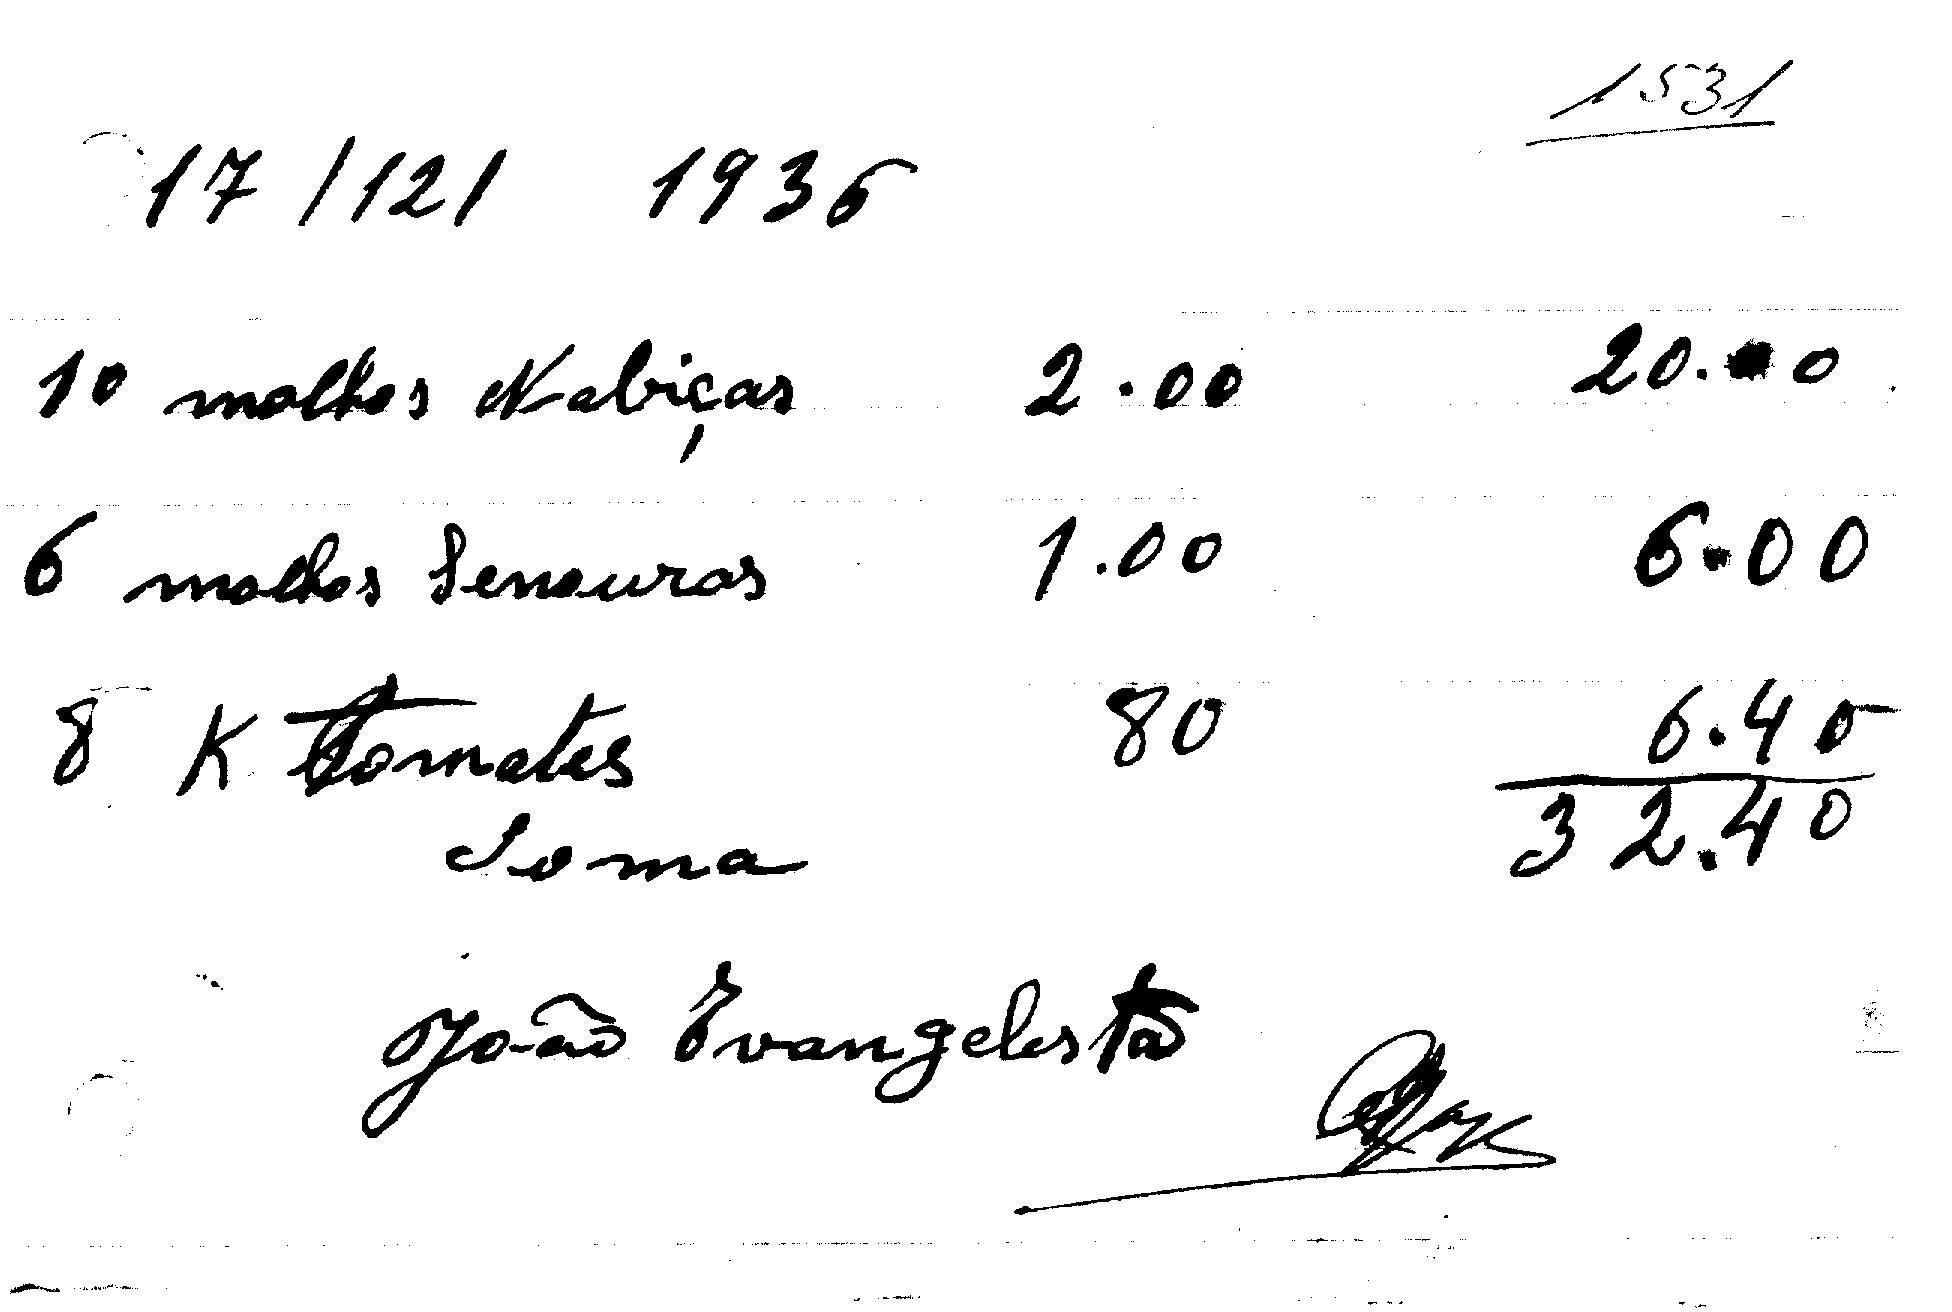 1531
17/12/ 1936
10 molhos Nabiças 2.00 20.00
6 molhos Senouras 1.00 6.00
8 K Tomates 80 6.40
Soma 32.40
João Evangelista